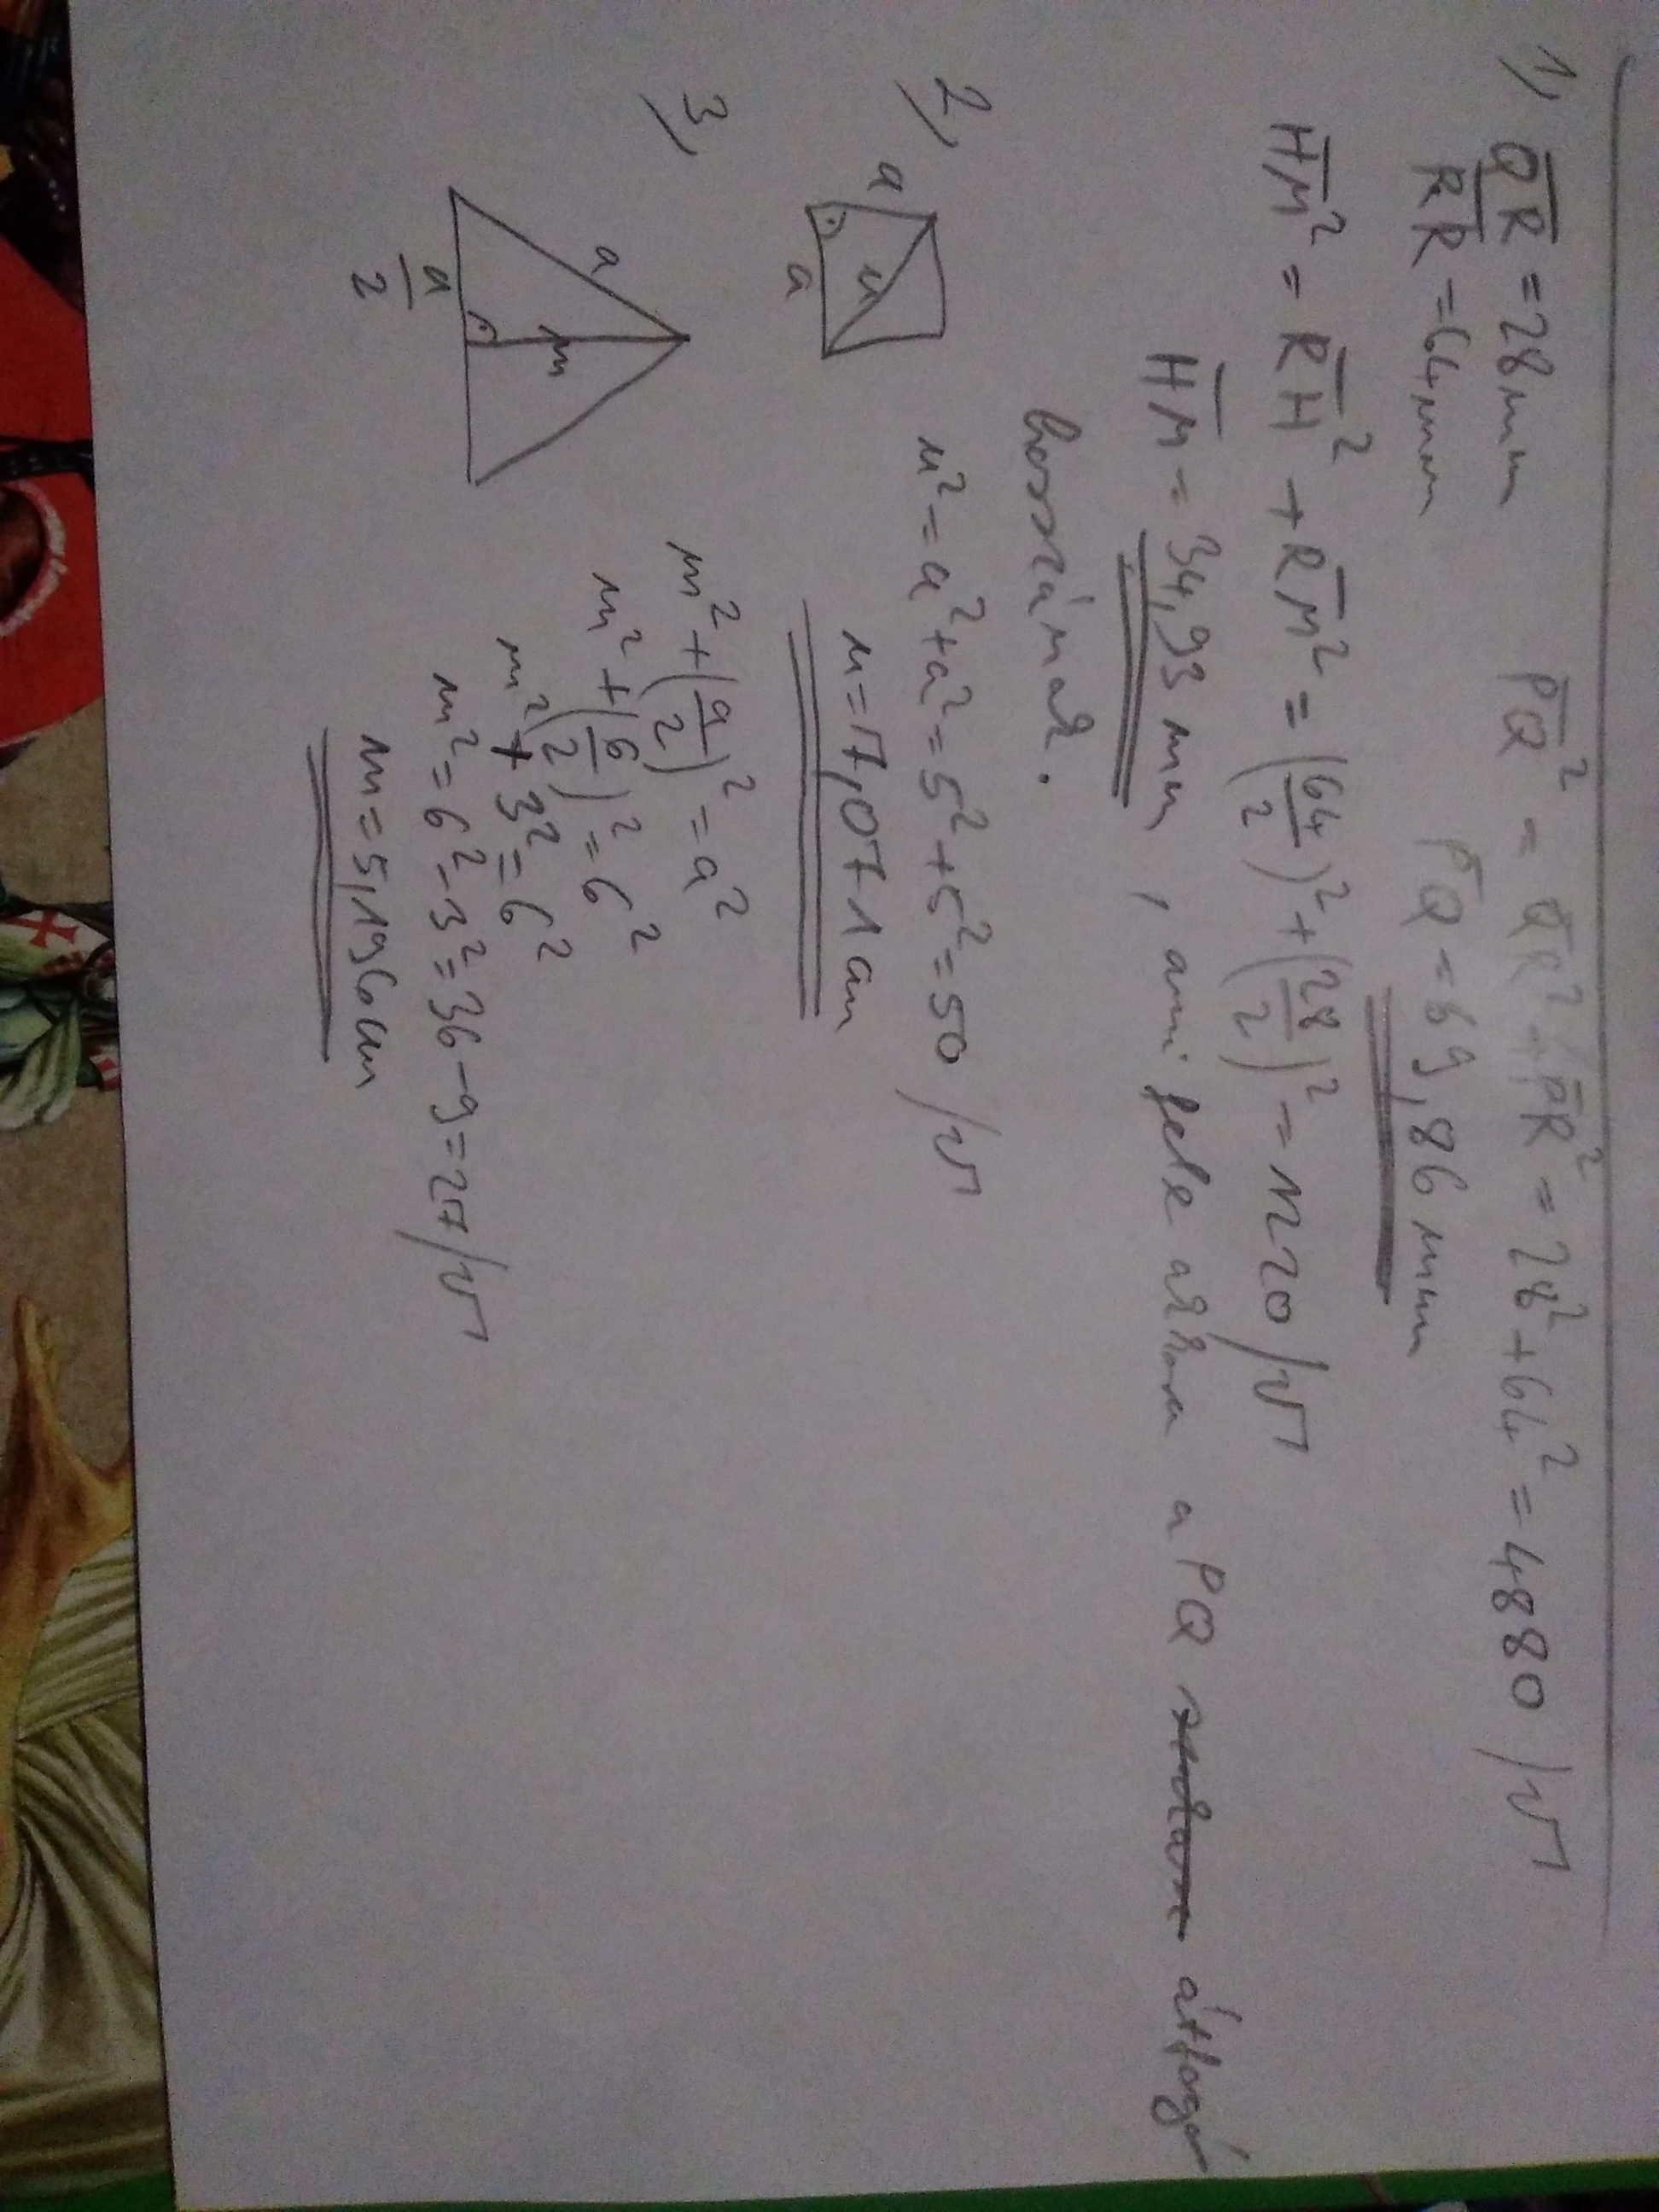 1, QR = 28mm PQ² = QR² + PR² = 28² + 64² = 4880 /√
RR = 64mm PQ = 69,86 mm
HM² = RH² + RM² = (64/2)² + (28/2)² = 1220 /√
HM = 34,93 mm, ami fele akkora a PQ átfogó
hosszának.
2, a a u u² = a² + a² = 5² + 5² = 50 /√
u = 7,071 cm
3, a m a/2 m² + (a/2)² = a²
m² + (6/2)² = 6²
m² + 3² = 6²
m² = 6² - 3² = 36 - 9 = 27 /√
m = 5,196 cm